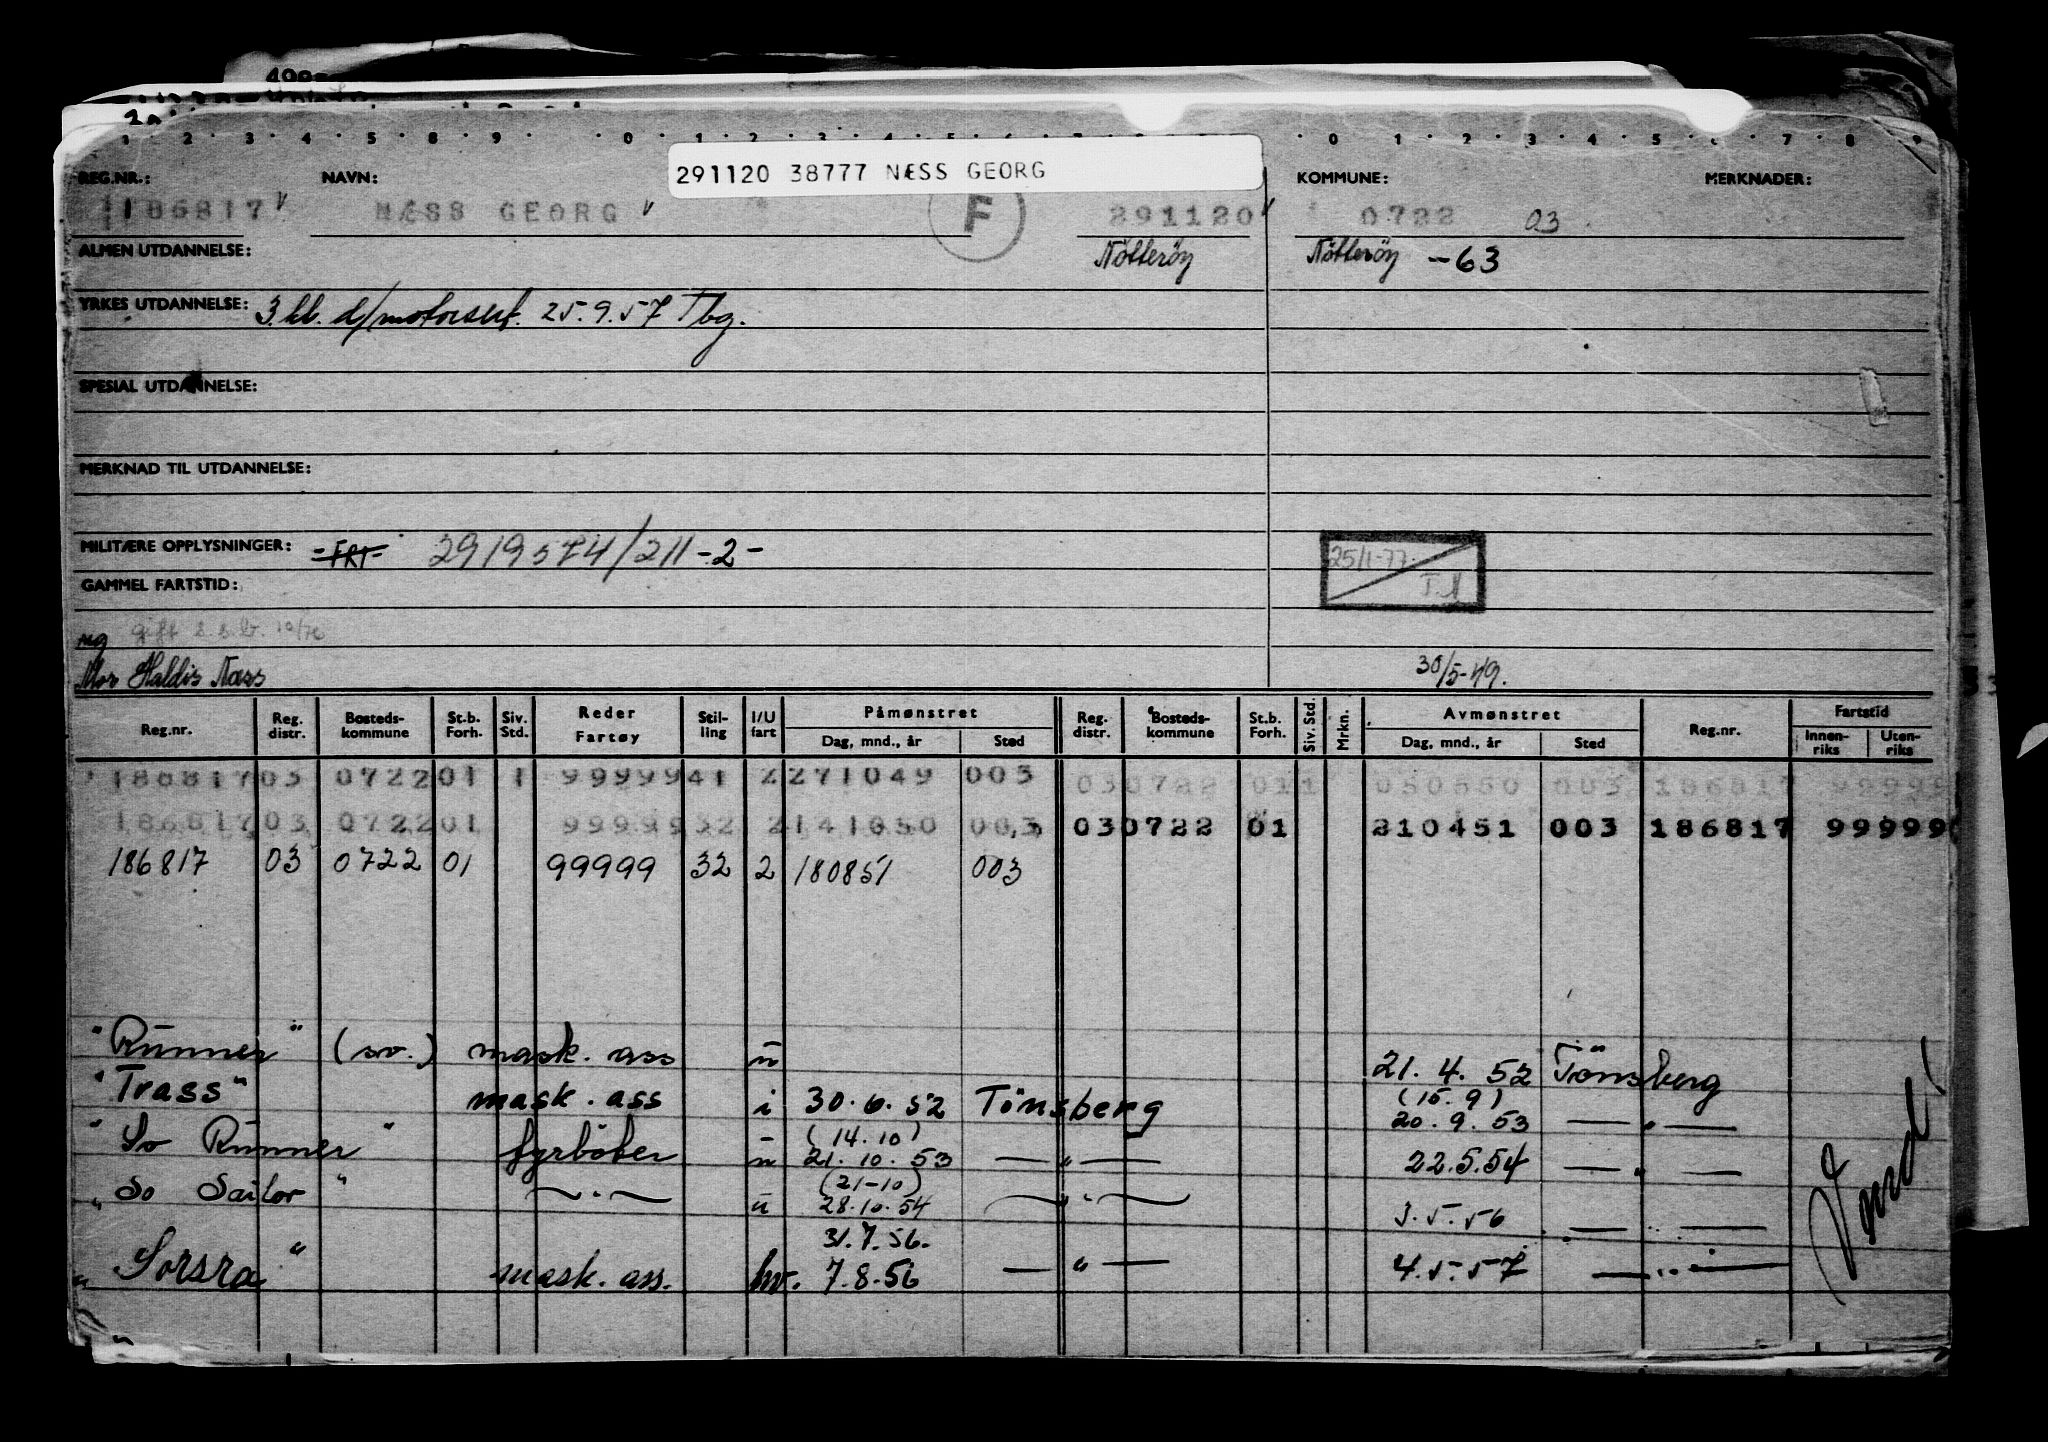 1 2 3 4 5 8 9 0 1 2 3 4 5 6 7 0 1 2 3 4 5 6 7 8 9
291120 38777 NÆSS GEORG
REG.NR.: NAVN: KOMMUNE: MERKNADER:
186817 NÆSS GEORG F 291120 0722 03
ALMEN UTDANNELSE: Nötteröy Nötteröy -63
YRKES UTDANNELSE: 3.kl. d/motorsert. 25.9.57 Tbg.
SPESIAL UTDANNELSE:
MERKNAD TIL UTDANNELSE:
MILITÆRE OPPLYSNINGER: -FRI- 2919574/211-2- 25/1-77.
GAMMEL FARTSTID:
ug gift 10/76
Mor Haldis Næss 30/5-49.
Reg.nr. Reg. distr. Bosteds-kommune St.b. Forh. Siv. Std. Reder Fartøy Stil-ling I/U fart Påmønstret Dag, mnd., år Sted Reg. distr. Bosteds-kommune St.b. Forh. Siv. Std. Mrkn. Avmønstret Dag, mnd., år Sted Reg.nr. Fartstid Innen-riks Uten-riks
186817 03 0722 01 1 99999 41 2 271049 003 03 0722 01 1 030550 003 186817 99999
186817 03 0722 01 99999 32 2 141050 003 03 0722 01 210451 003 186817 99999
186817 03 0722 01 99999 32 2 180851 003
"Runner" (sv.) mask. ass u 21. 4. 52 Tönsberg
"Trass" mask. ass i 30. 6. 52 Tönsberg (15. 9) 20. 9. 53 — " —
"So Runner" fyrböter u (14. 10) 21. 10. 53 — " — 22.5.54 — " —
"So Sailor" — " — u (21-10) 28. 10. 54 — " — 3. 5. 56 — " —
31. 7. 56.
"Sorsra" mask. ass. hv. 7. 8. 56 — " — 4. 5. 57 — " —
Vend!